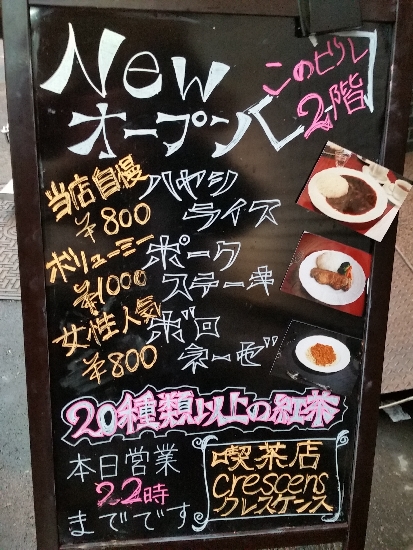 New
このビル
2階
オープン
当店自慢
¥800
ハヤシ
ライス
ボリューミー
¥1000
ポーク
ステーキ
女性人気
¥800
ボロ
ネーゼ
20種類以上の紅茶
本日営業
22時
までです
喫茶店
Crescens
クレスケンス